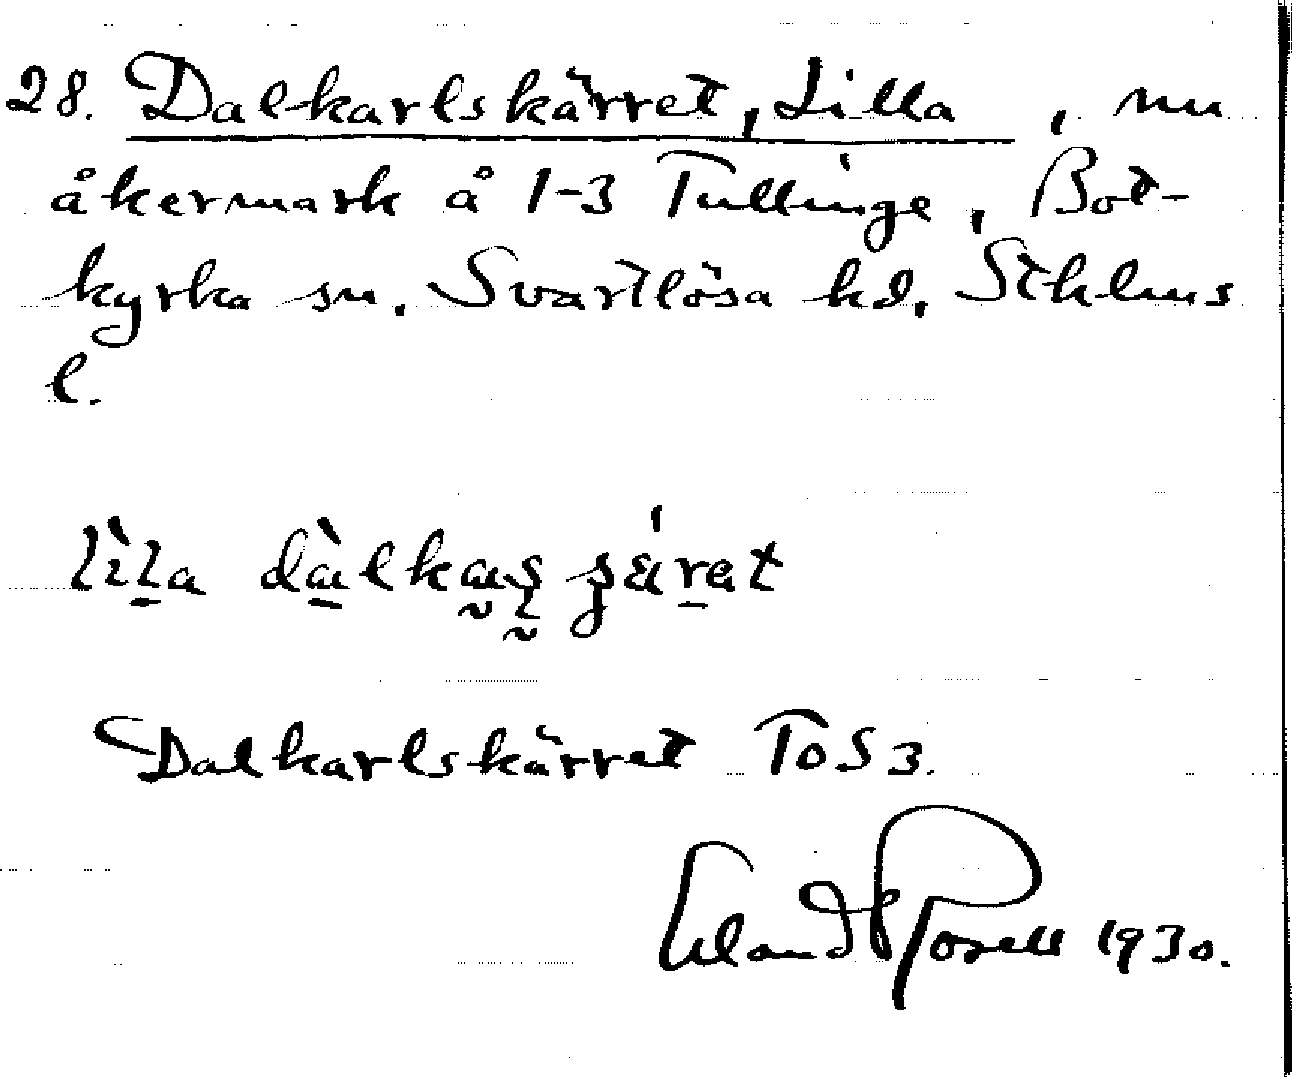 28. Dalkarlskärret, Lilla, nu
åkermark å 1-3 Tullinge, Bot-
kyrka sn. Svartlösa hd, Sthlms
l.
Dalkarlskärret ToS 3.
Erland Rosell 1930.